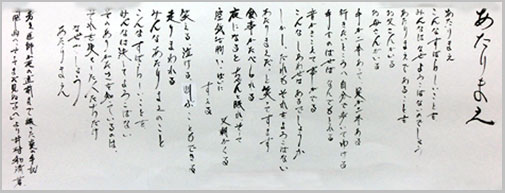 あたりまえ
あたりまえ
こんなすばらしいことを
みんなはなぜよろこばないのでしょう
お父さんがいる
お母さんがいる
手が二本あって、足が二本ある
行きたいところへ自分で歩いてゆける
手をのばせばなんでもとれる
音がきこえて声がでる
こんなしあわせはあるでしょうか
しかし、だれもそれをよろこばない
あたりまえだと笑ってすます
食事がたべられる
夜になるとちゃんと眠れそして
又朝がくる
空気を胸いっぱいに
すえる
笑える、泣ける、叫ぶこともできる
走りまわれる
みんなあたりまえのこと
こんなすばらしいことを
みんなは決してよろこばない
そのありがたさを知っているのは、
それを失くした人たちだけ
なぜでしょう
あたりまえ
若き医師が死の直前まで綴った愛の手記
「飛鳥へ、そしてまだ見ぬ子へ」より 井村和清 著